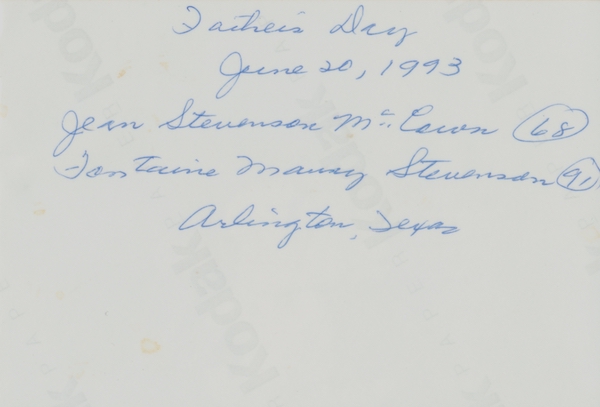 Father's Day
June 20, 1993
Jean Stevenson McCown (68)
Fontaine Maury Stevenson (91)
Arlington, Texas
Kodak
Kodak
Kodak
Kodak